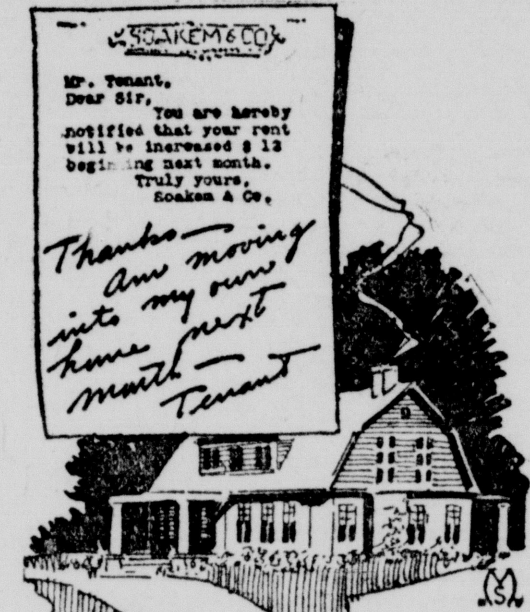 SOAKEM & CO
Mr. Tenant,
Dear Sir,
You are hereby
notified that your rent
will be increased $ 12
beginning next month.
Truly yours,
Soakem & Co.
Thanks—
am moving
into my own
home next
month—
Tenant
MS